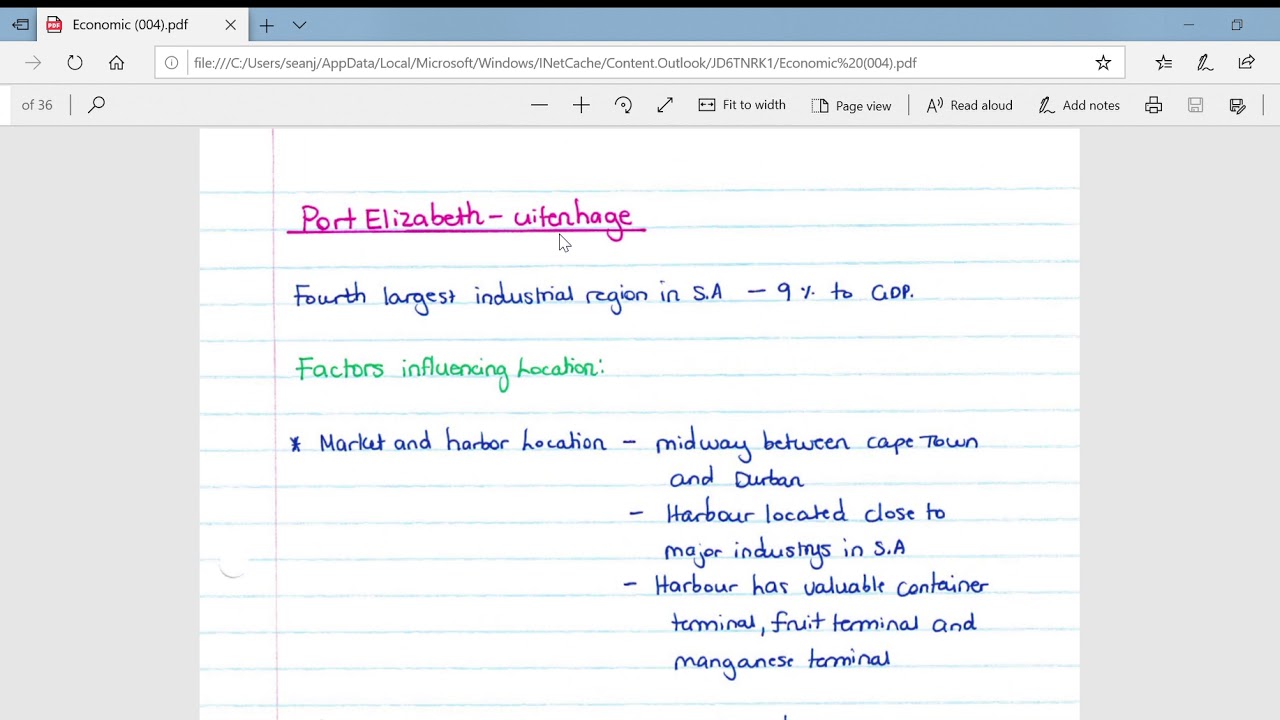 Economic (004).pdf
file:///C:/Users/seanj/AppData/Local/Microsoft/Windows/INetCache/Content.Outlook/JD6TNRK1/Economic%20(004).pdf
of 36
Fit to width
Page view
Read aloud
Add notes
Port Elizabeth - uitenhage
Fourth largest industrial region in S.A - 9% to GDP.
Factors influencing Location:
* Market and harbor Location - midway between cape Town
and Durban
- Harbour located close to
major industrys in S.A
- Harbour has valuable container
terminal, fruit terminal and
manganese terminal